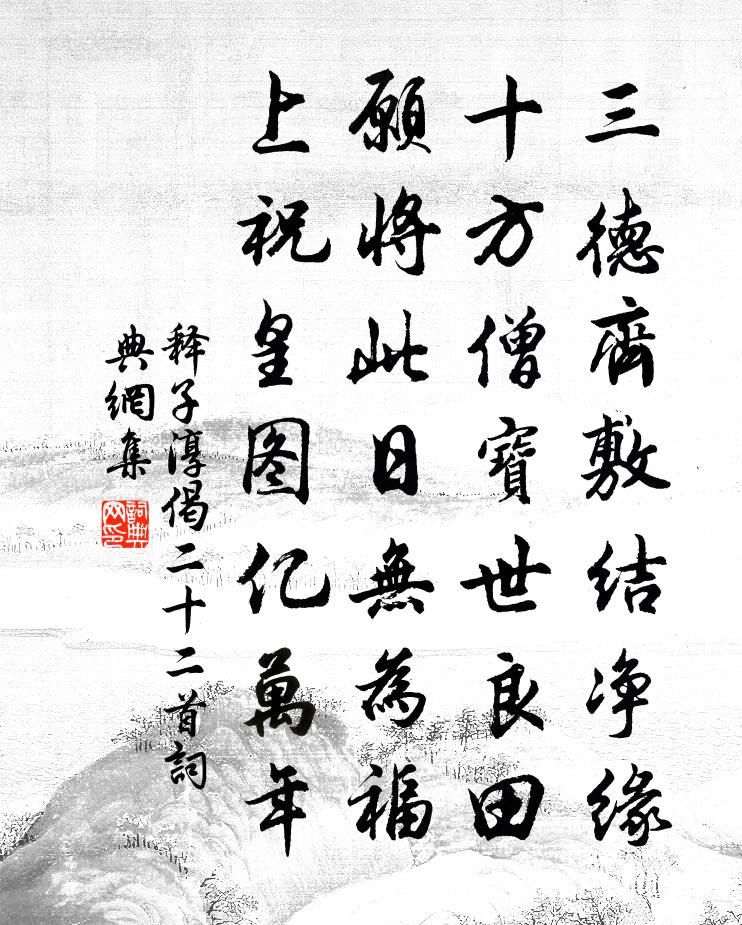 三德齊敷結净缘
十方僧寶世良田
願將此日無為福
上祝皇图亿萬年
释子淳偈二十二首詞
典網集
詞典
网印